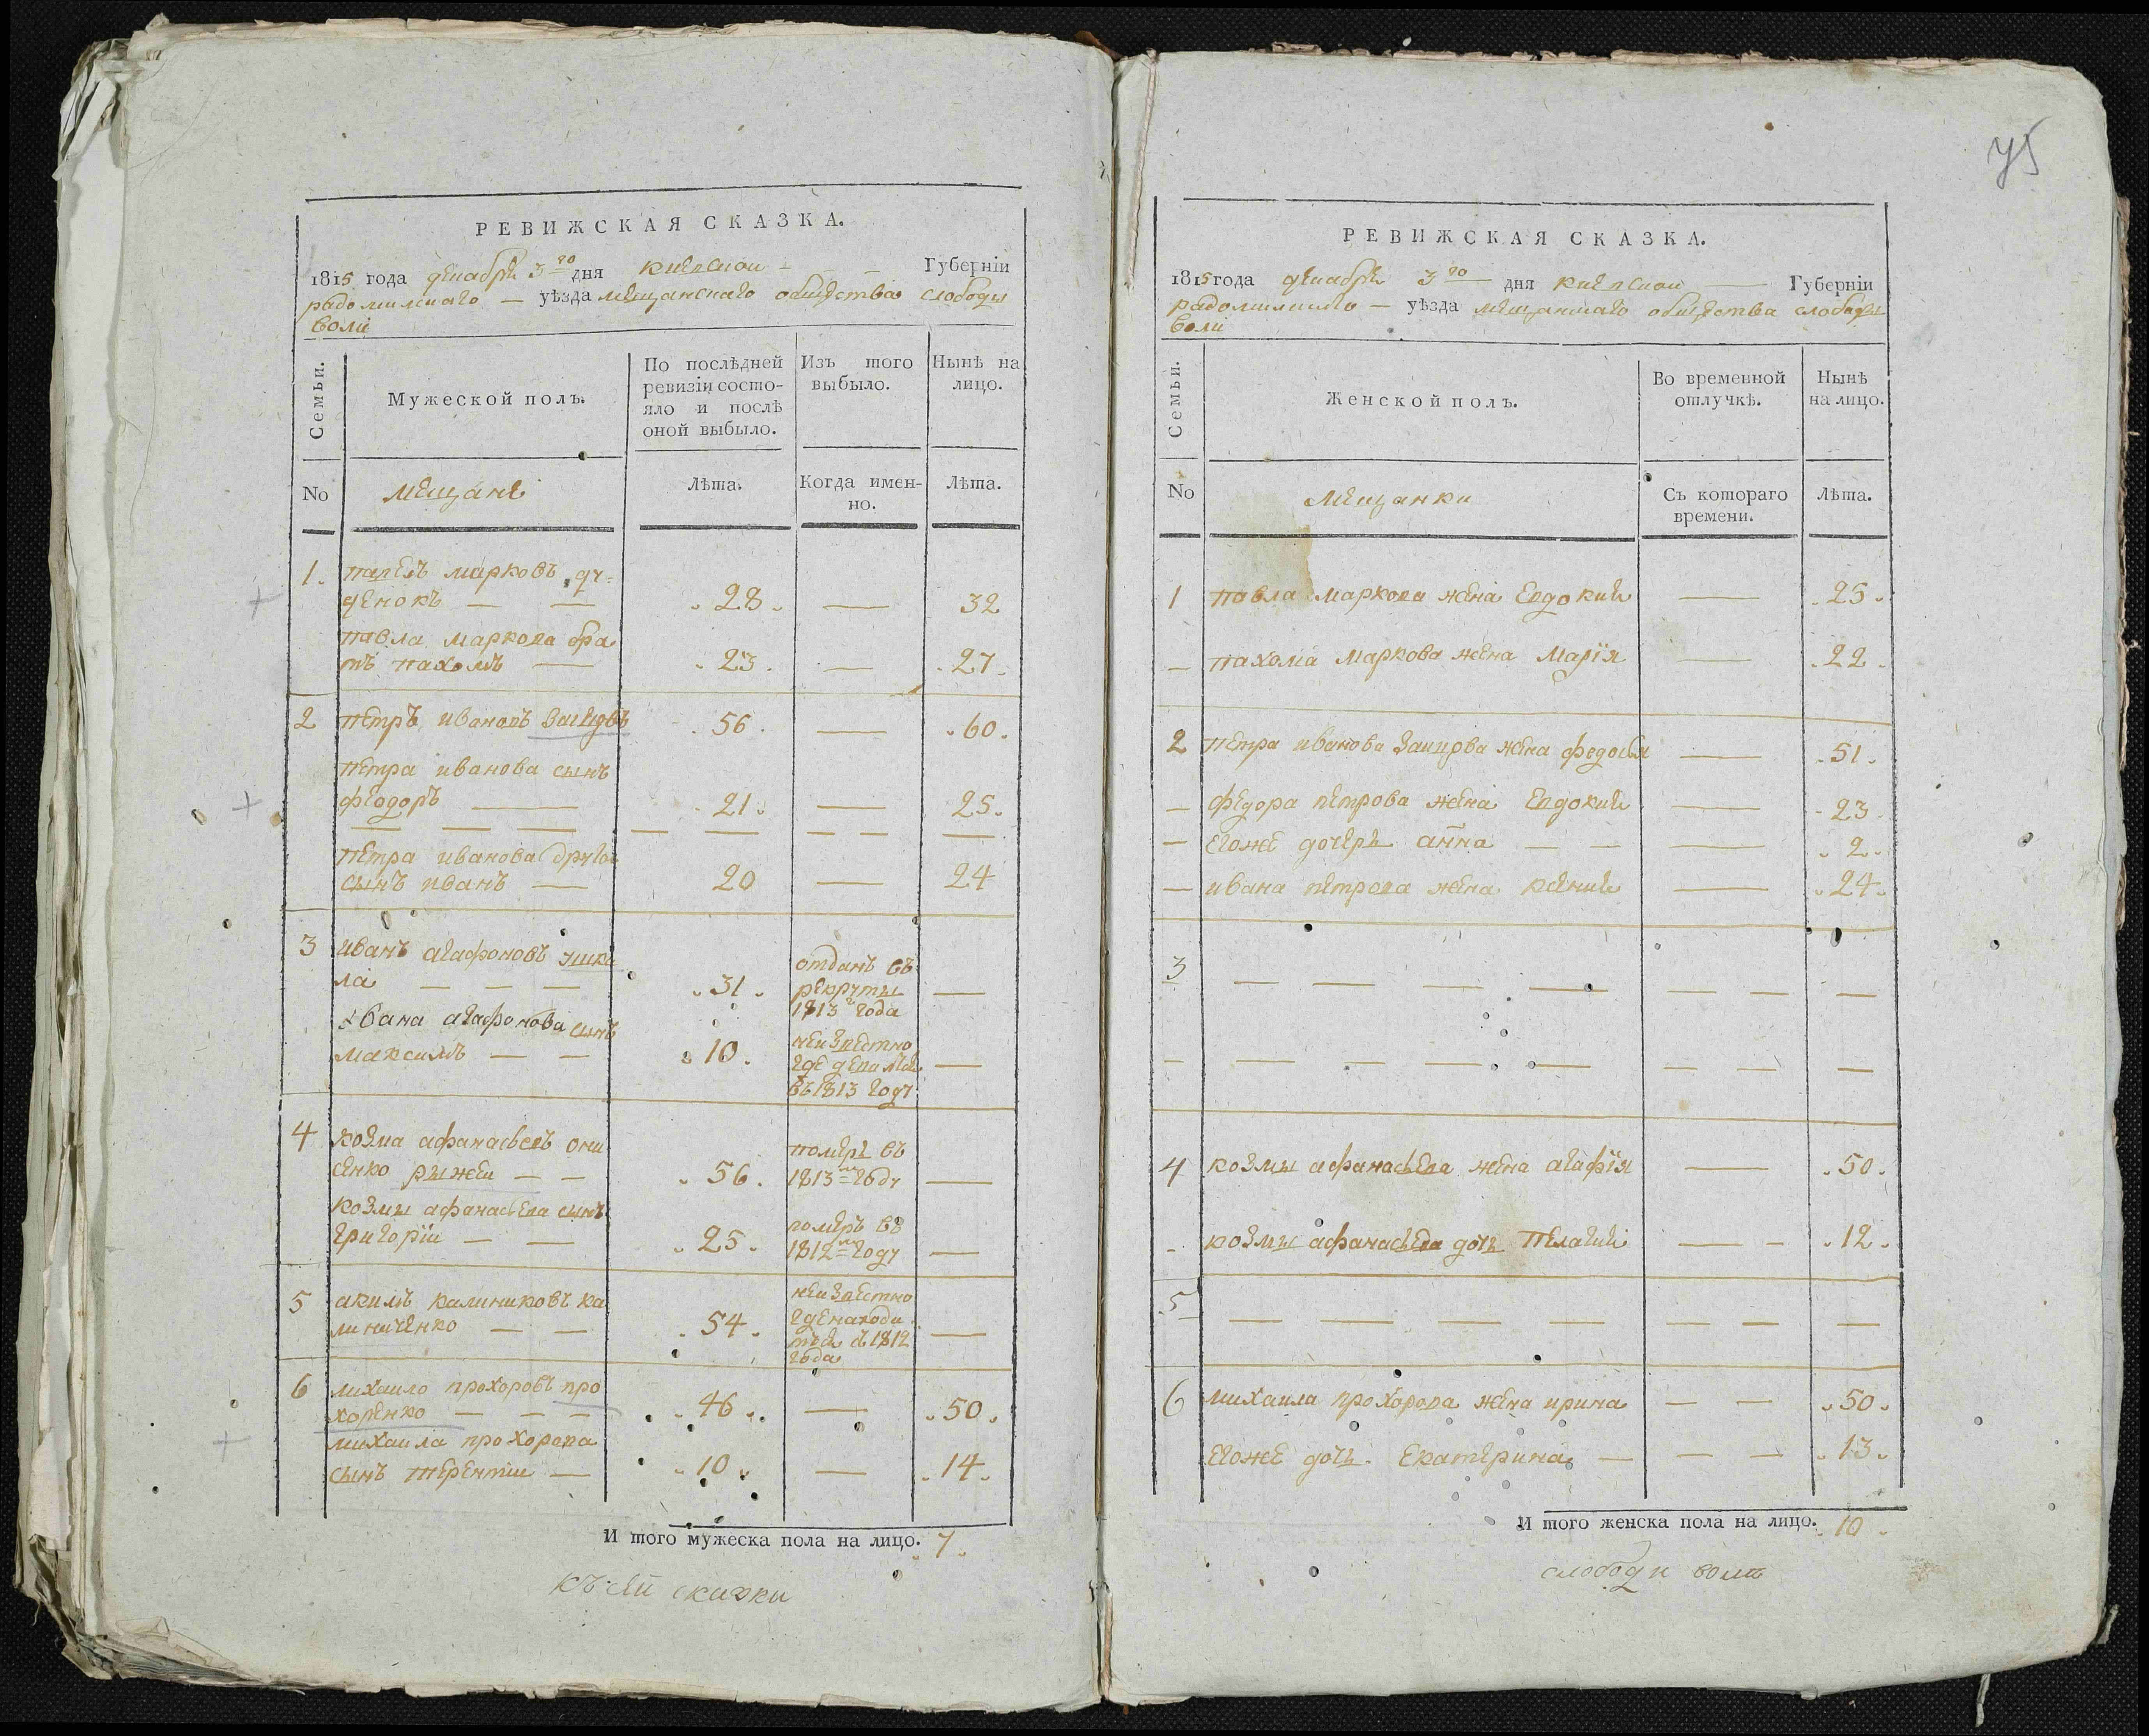 РЕВИЖСКАЯ СКАЗКА.
1815 года декабря 3го дня киевской Губерніи
радомилскаго — уѣзда мещанскаго общества слободы
воли
Семьи.
Мужеской полъ.
По послѣдней
ревизіи состо-
яло и послѣ
оной выбыло.
Изъ того
выбыло.
Нынѣ на
лицо.
No
мещане
Лѣта.
Когда имен-
но.
Лѣта.
1. павелъ марковъ ду=
денокъ — — 28. — 32
павла маркова бра
тъ пахомъ — 23. — 27.
2 петръ ивановъ заицовъ 56. — 60.
петра иванова сынъ
феодоръ — 21. — 25.
петра иванова другой
сынъ иванъ — 20 — 24
3 иванъ агафоновъ ушка
ла — — — 31. отданъ въ
рекруты
1813г года —
Ивана агафонова сынъ
максимъ — — 10. неизвестно
где девался
въ 1813 году —
4 козма афанасьевъ они
сенко рыжеи — — 56. померъ въ
1813м году —
козмы афанасьева сынъ
григоріи — — 25. померъ въ
1812м году —
5 акимъ калиниковъ ка
линиченко — — 54. неизвестно
где находи
тся съ 1812
года —
6 михаило прохоровъ про
хоренко — — — 46. — 50.
михаила прохорова
сынъ терентіи — 10. — 14.
И того мужеска пола на лицо. 7.
къ сей сказки
75
РЕВИЖСКАЯ СКАЗКА.
1815 года декабря 3го дня киевской — Губерніи
радомилскаго — уѣзда мещанскаго общества слободы
воли
Семьи.
Женской полъ.
Во временной
отлучкѣ.
Нынѣ
на лицо.
No
мещанки
Съ котораго
времени.
Лѣта.
1 павла маркова жена Евдокия — 25.
— пахома маркова жена Марїя — 22.
2 петра иванова заицова жена федосья — 51.
— федора петрова жена Евдокия — 23.
— егоже дочерь анна — — — 2.
— ивана петрова жена ксения — 24.
3 — — — — — — —
— — — — — — — —
4 козмы афанасьева жена агафїя — 50.
- козмы афанасьева дочь Пелагия — - 12.
5 — — — — — — —
6 михаила прохорова жена ирина — — 50.
егоже дочь Екатерина — — — 13.
И того женска пола на лицо. 10.
слободи воли